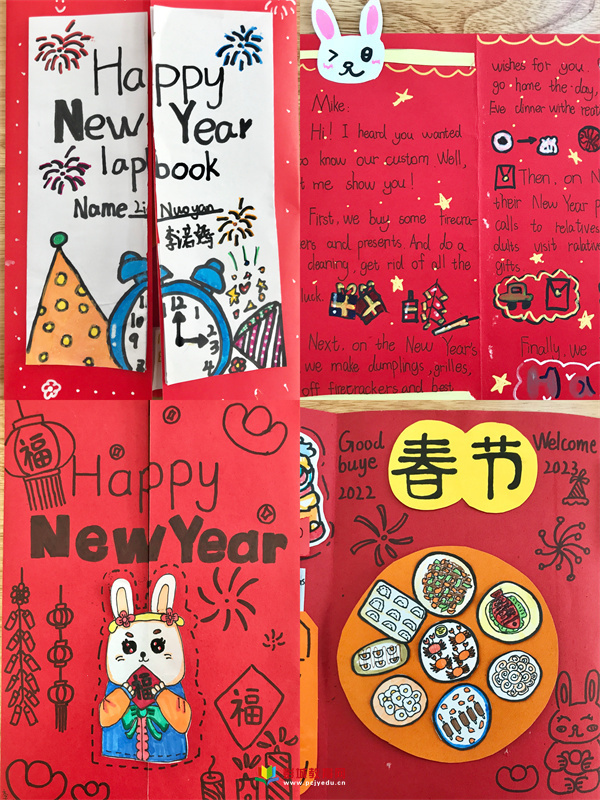 Happy
New Year
lapbook
Name Li Nuoyan
李诺
12
Mike:
Hi! I heard you wanted
o know our custom Well,
t me show you!
First, we buy some firecra-
ers and presents. And do a
cleaning, get rid of all the
luck.
Next, on the New Year's
we make dumplings, grilles,
off firecrackers and best
wishes for you.
go home the day,
Eve dinner withe
Then, on N
their New Year p
calls to relatives
dults visit ralative
gifts
Finally, we
福
Happy
New Year
福
福
Good
buye
2022
春节
Welcome
2023
www.pzjyedu.cn